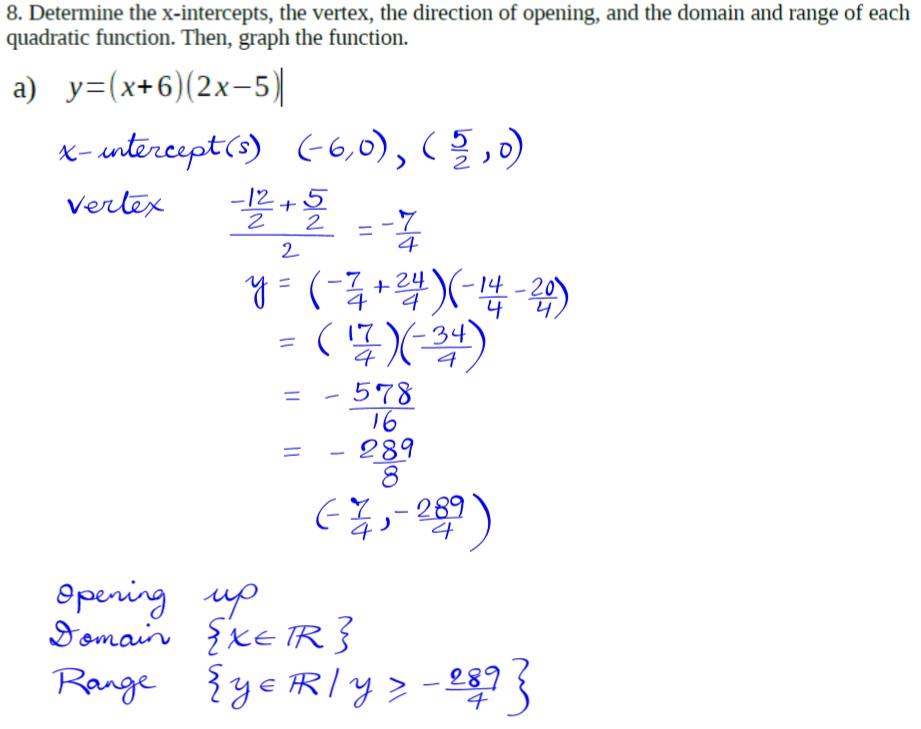 8. Determine the x-intercepts, the vertex, the direction of opening, and the domain and range of each
quadratic function. Then, graph the function.
a) y=(x+6)(2x−5)
x-intercept(s) (-6,0), (5/2,0)
vertex (-12/2 + 5/2)/2 = -7/4
y = (-7/4 + 24/4)(-14/4 - 20/4)
= (17/4)(-34/4)
= - 578/16
= - 289/8
(-7/4, -289/4)
Opening up
Domain {x∈ℝ}
Range {y∈ℝ/y ≥ -289/4}